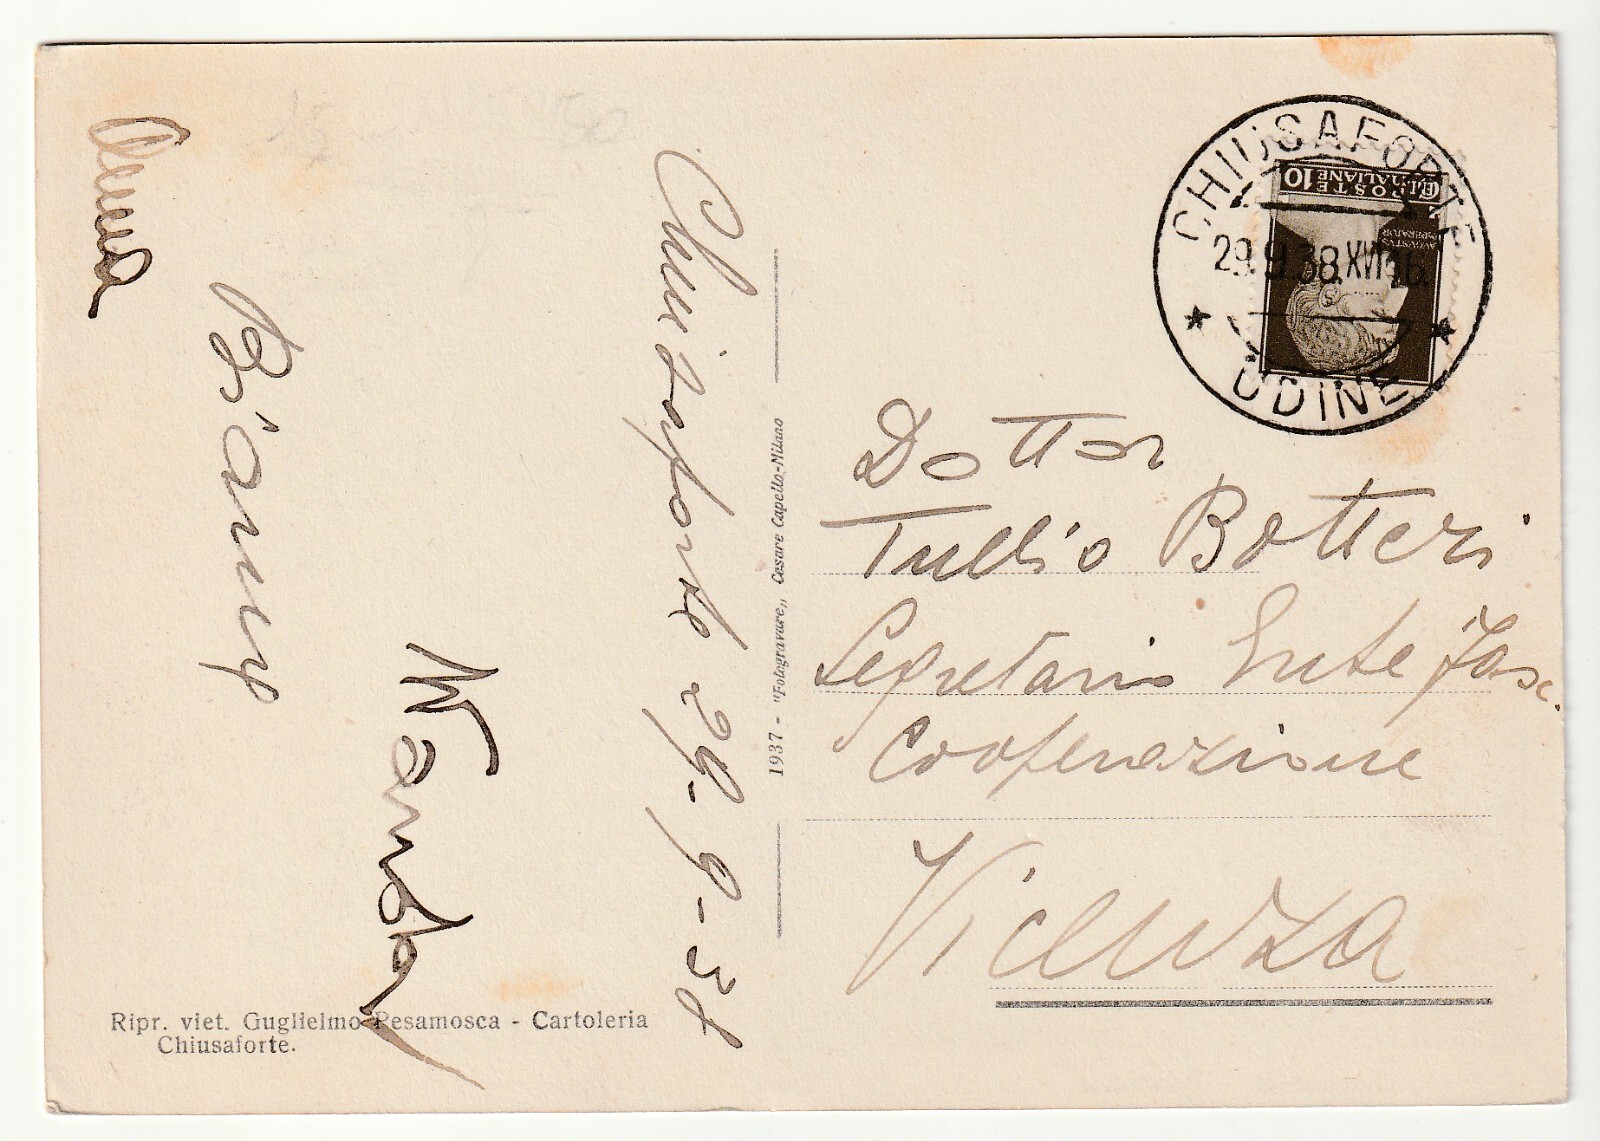 Chiusaforte 29-9-38
Wanda
Ripr. viet. Guglielmo Pesamosca - Cartoleria
Chiusaforte.
1937 - "Fotogravure„ Cesare Capello-Milano
CHIUSAFORTE
29.9.38.XVI 16
UDINE
POSTE ITALIANE 10
Dottor
Tullio Botteri
Segretario Ente Fasc.
Cooperazione
Vicenza